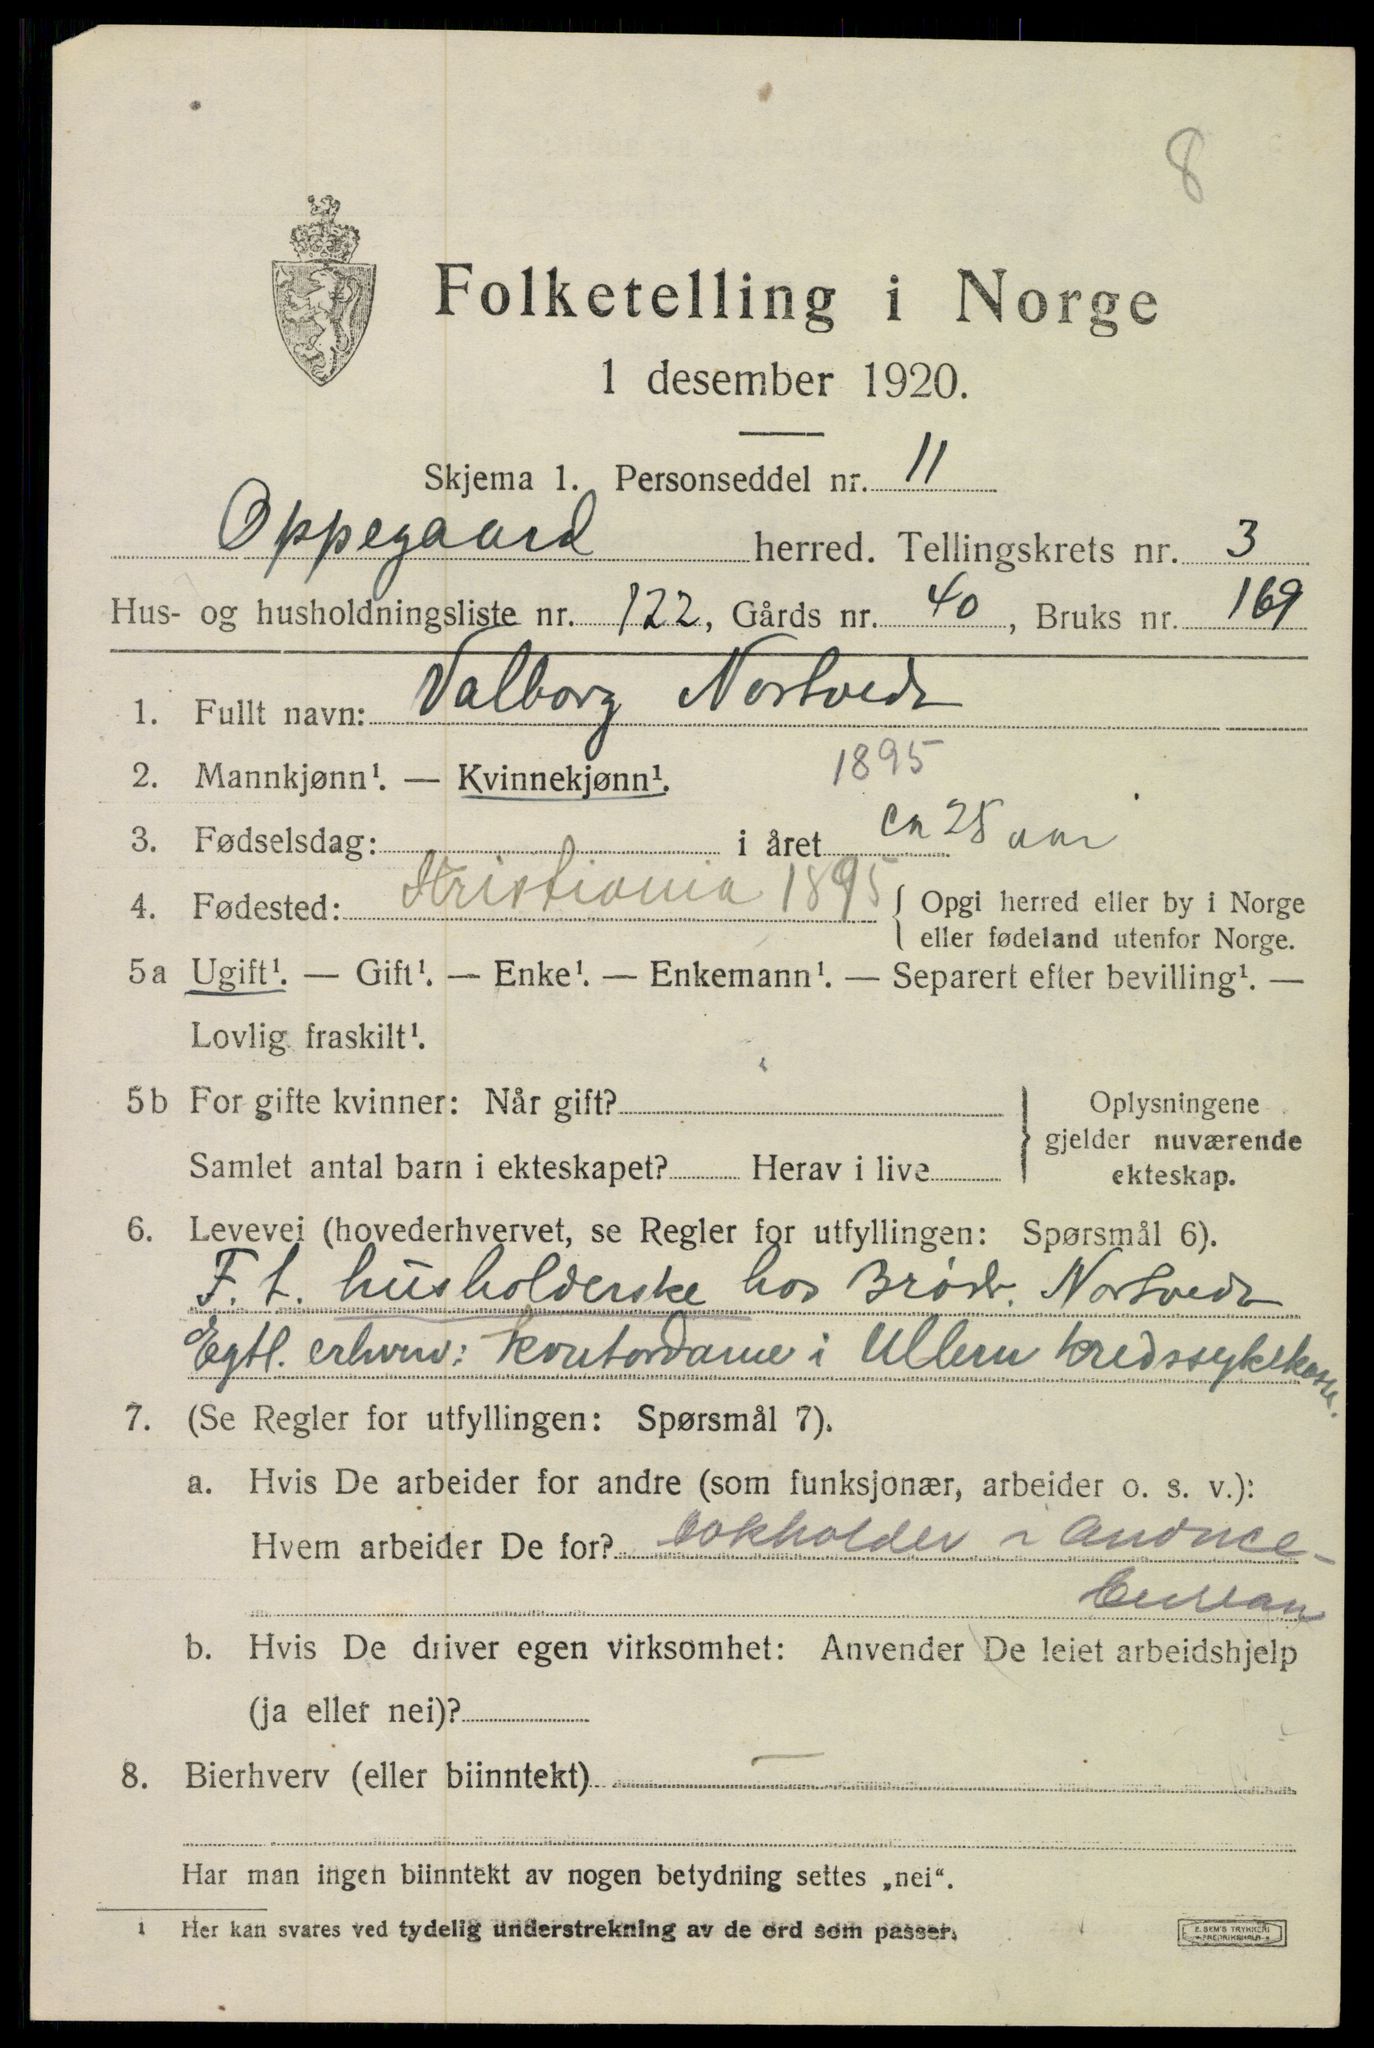 8
Folketelling i Norge
1 desember 1920.
Skjema 1. Personseddel nr. 11
Oppegaard herred. Tellingskrets nr. 3
Hus- og husholdningsliste nr. 122, Gårds nr. 40, Bruks nr. 169
1. Fullt navn: Valborg Nortvedt
2. Mannkjønn¹. — Kvinnekjønn¹. 1895
3. Fødselsdag: i året ca 25 aar
4. Fødested: Kristiania 1895 { Opgi herred eller by i Norge
eller fødeland utenfor Norge.
5a Ugift¹. — Gift¹. — Enke¹. — Enkemann¹. — Separert efter bevilling¹. —
Lovlig fraskilt¹.
5b For gifte kvinner: Når gift? } Oplysningene
gjelder nuværende
Samlet antal barn i ekteskapet? Herav i live ekteskap.
6. Levevei (hovederhvervet, se Regler for utfyllingen: Spørsmål 6).
F. t. husholderske hos Brødr. Nortvedt
Egtl. erhverv: kontordame i Ullern kredssykekasse.
7. (Se Regler for utfyllingen: Spørsmål 7).
a. Hvis De arbeider for andre (som funksjonær, arbeider o. s. v.):
Hvem arbeider De for? bokholder i Anonce-
bureau
b. Hvis De driver egen virksomhet: Anvender De leiet arbeidshjelp
(ja eller nei)?
8. Bierhverv (eller biinntekt) —
Har man ingen biinntekt av nogen betydning settes „nei".
1 Her kan svares ved tydelig understrekning av de ord som passer.
E. SEM'S TRYKKERI
FREDRIKSHALD